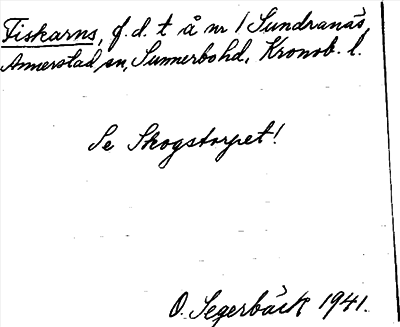 Fiskarns, f.d. t å nr 1 Sundranäs,
Annerstad sn, Sunnerbo hd, Kronob. l.
Se Skogstorpet!
O. Segerbäck 1941.